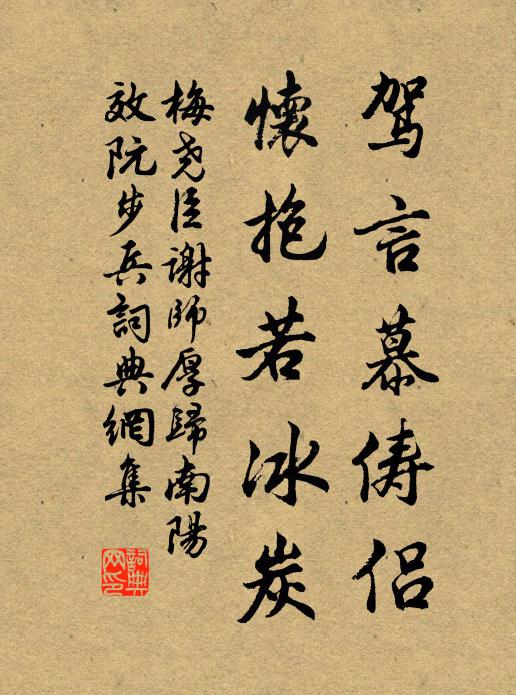 駕言慕儔侶
懷抱若冰炭
梅尧臣謝師厚歸南陽
效阮步兵詞典網集
詞典網印